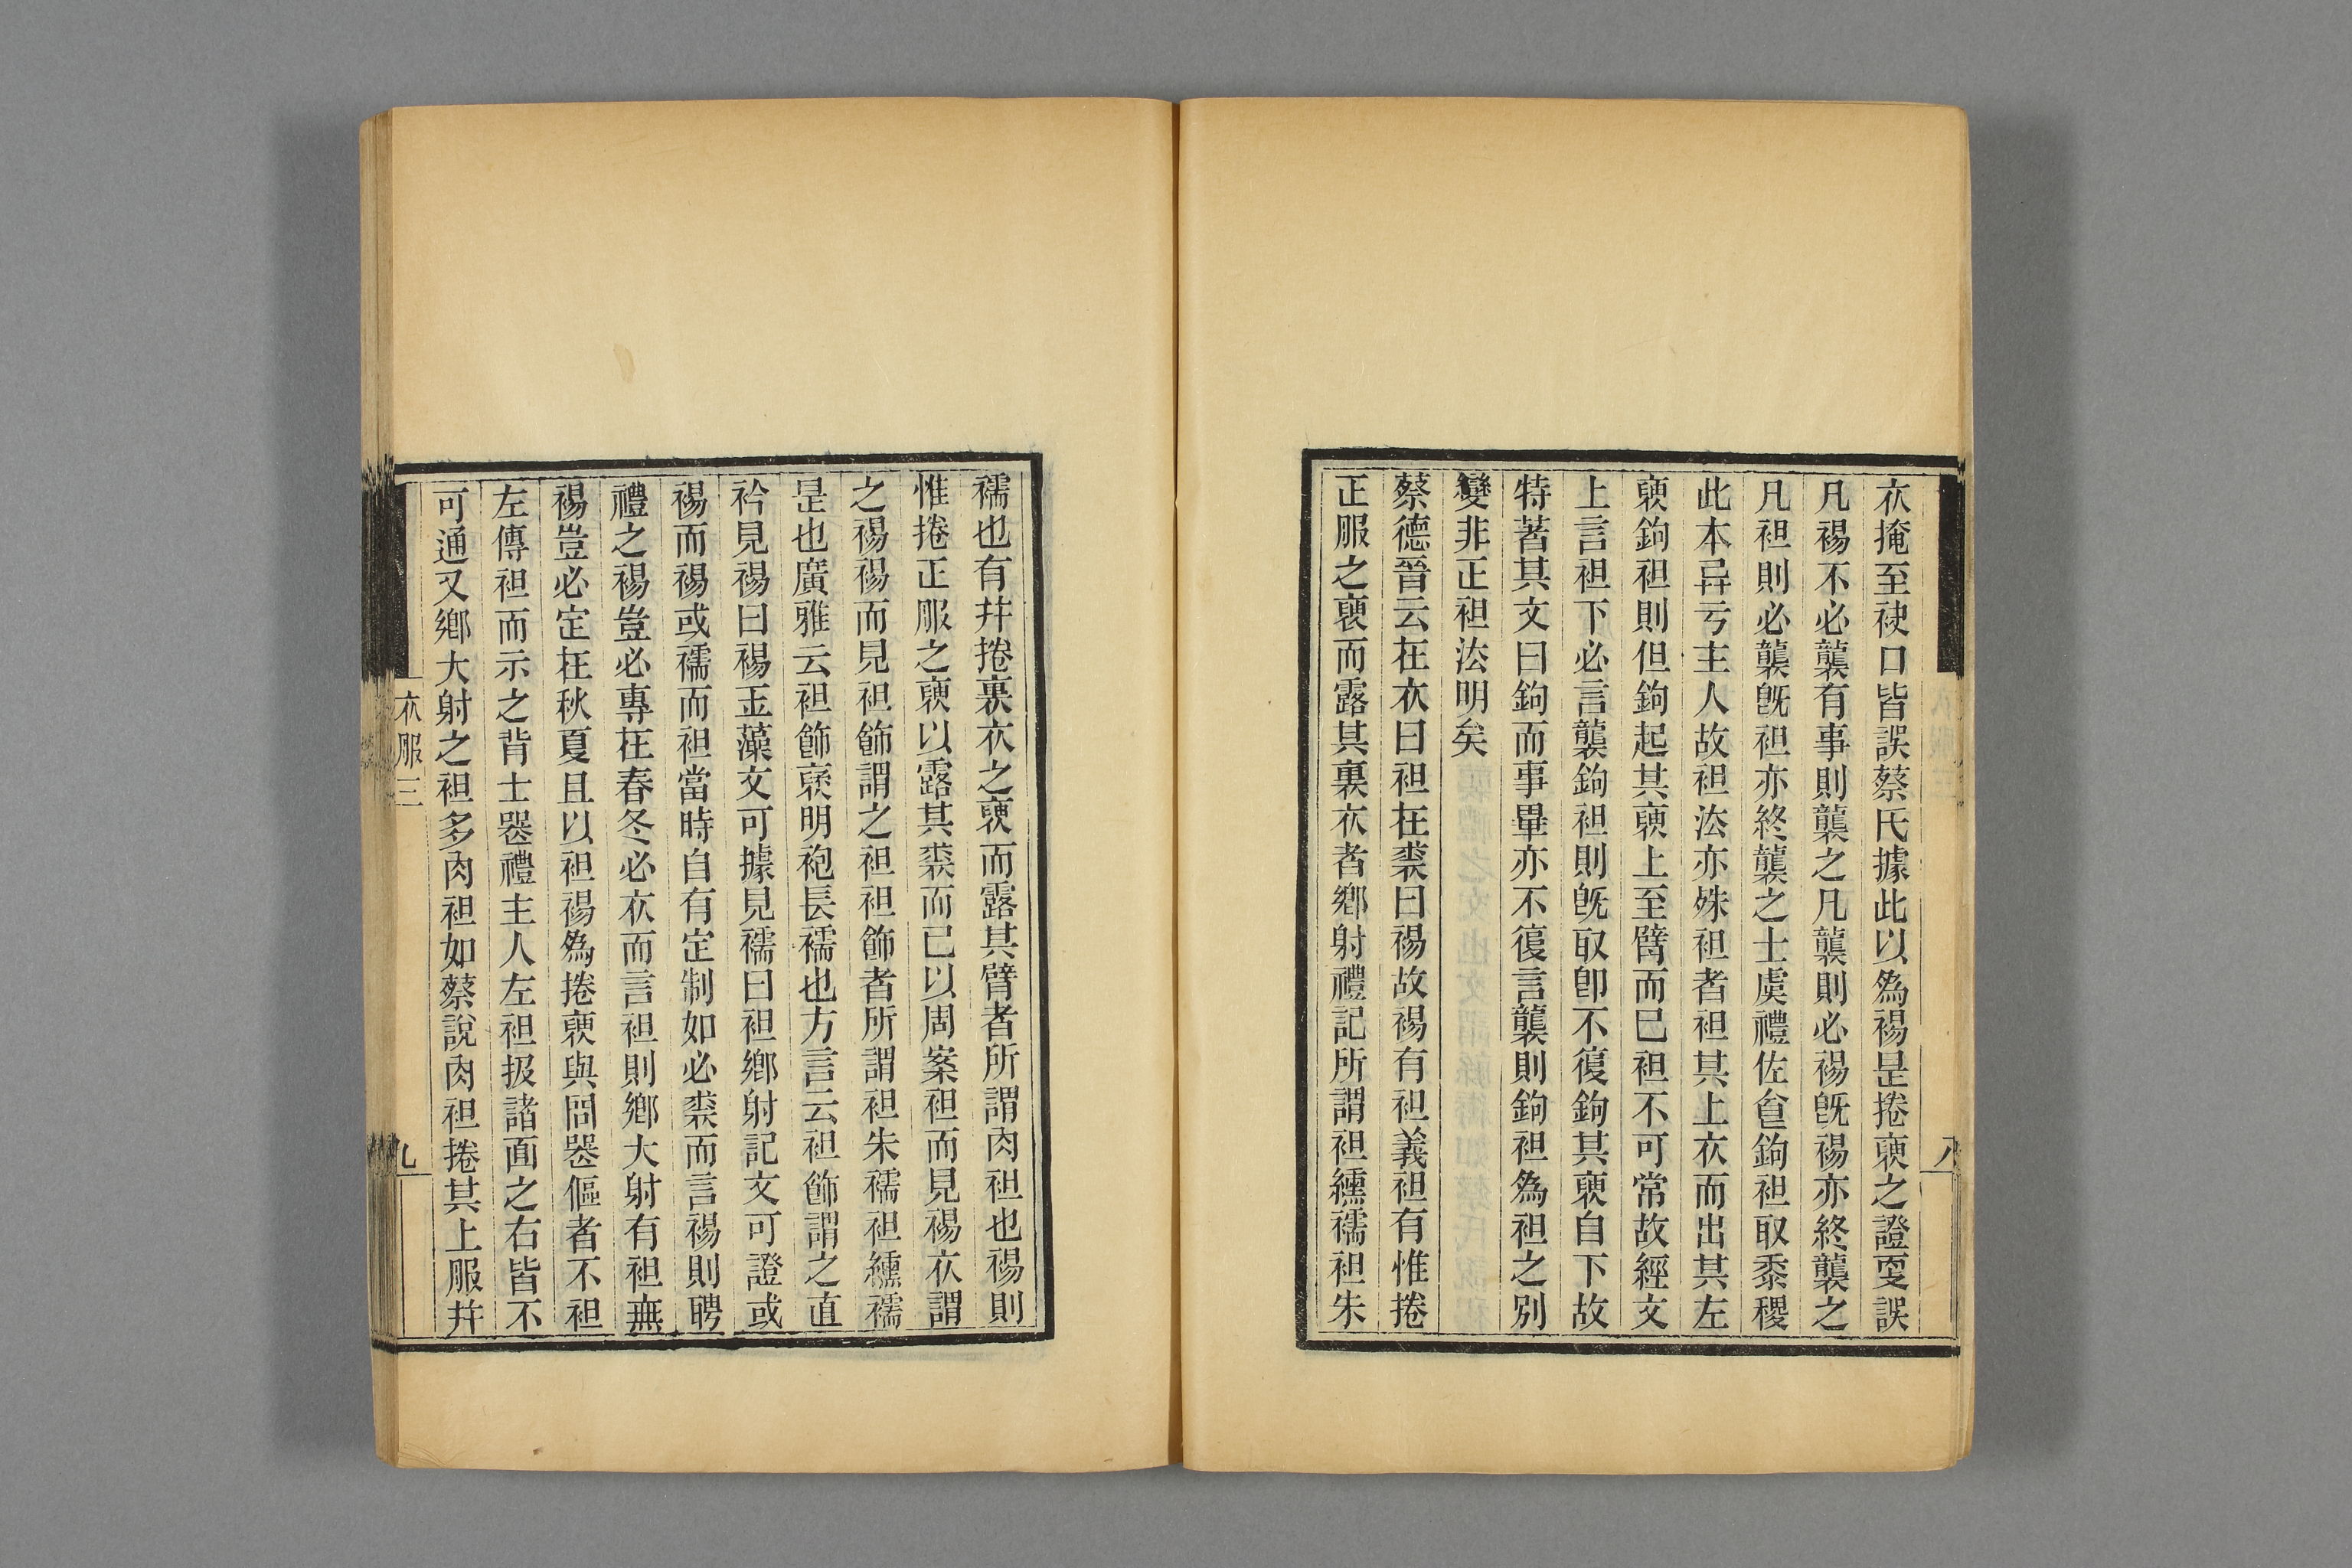 衣掩至䘱口皆誤蔡氏據此以爲裼是捲褎之證㪅誤
凡裼不必襲有事則襲之凡襲則必裼旣裼亦終襲之
凡袒則必襲旣袒亦終襲之士虞禮佐食鉤袒取黍稷
此本异亏主人故袒㳒亦殊袒者袒其上衣而出其左
褎鉤袒則但鉤起其褎上至臂而已袒不可常故經文
上言袒下必言襲鉤袒則旣取卽不復鉤其褎自下故
特著其文曰鉤而事畢亦不復言襲則鉤袒爲袒之別
變非正袒㳒明矣
蔡德晉云在衣曰袒在裘曰裼故裼有袒義袒有惟捲
正服之褎而露其裏衣者鄉射禮記所謂袒纁襦袒朱
襦也有并捲裏衣之褎而露其臂者所謂肉袒也裼則
惟捲正服之褎以露其裘而已以周案袒而見裼衣謂
之裼裼而見袒飾謂之袒袒飾者所謂袒朱襦袒纁襦
是也廣雅云袒飾褎明袍長襦也方言云袒飾謂之直
衿見裼曰裼玉藻文可據見襦曰袒鄉射記文可證或
裼而裼或襦而袒當時自有定制如必裘而言裼則聘
禮之裼豈必專在春冬必衣而言袒則鄉大射有袒無
裼豈必定在秋夏且以袒裼爲捲褎與冏器傴者不袒
左傳袒而示之背士器禮主人左袒扱諸面之右皆不
可通又鄉大射之袒多肉袒如蔡說肉袒捲其上服并
衣服三
九
八